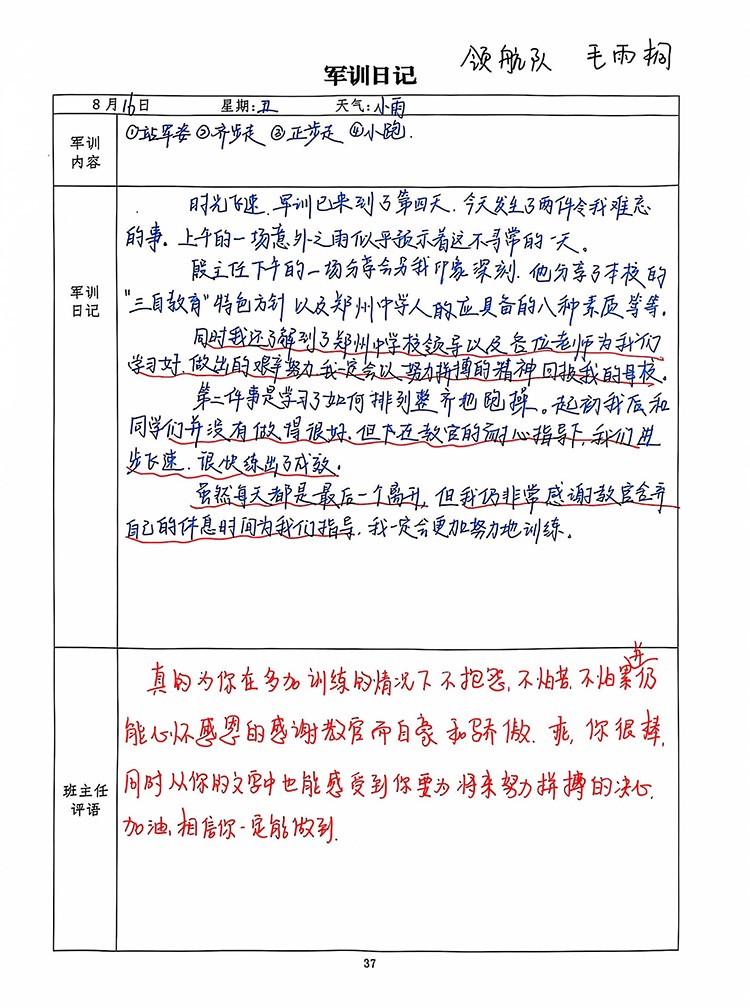 领航队 毛雨桐
军训日记
8月16日 星期:五 天气:小雨
军训
内容
①站军姿②齐步走③正步走④小跑.
军训
日记
时光飞速,军训已来到了第四天,今天发生了两件令我难忘
的事。上午的一场意外之雨似乎预示着这不寻常的一天。
殷主任下午的一场分享会另我印象深刻.他分享了本校的
"三自教育"特色方针以及郑州中学人的应具备的八种素质等等。
同时我还了解到了郑州中学校领导以及各位老师为我们
学习好,做出的艰辛努力,我一定会以努力拼搏的精神回报我的母校。
第二件事是学习了如何排列整齐地跑操。起初我后和
同学们并没有做得很好,但下还教官的耐心指导下,我们进
步飞速,很快练出了成效。
虽然每天都是最后一个离开,但我仍非常感谢教官舍弃
自己的休息时间为我们指导,我一定会更加努力地训练。
班主任
评语
真的为你在多加训练的情况下不抱怨,不怕苦,不怕累并仍
能心怀感恩的感谢教官而自豪和骄傲.乖,你很棒,
同时从你的文字中也能感受到你要为将来努力拼搏的决心.
加油,相信你一定能做到.
37